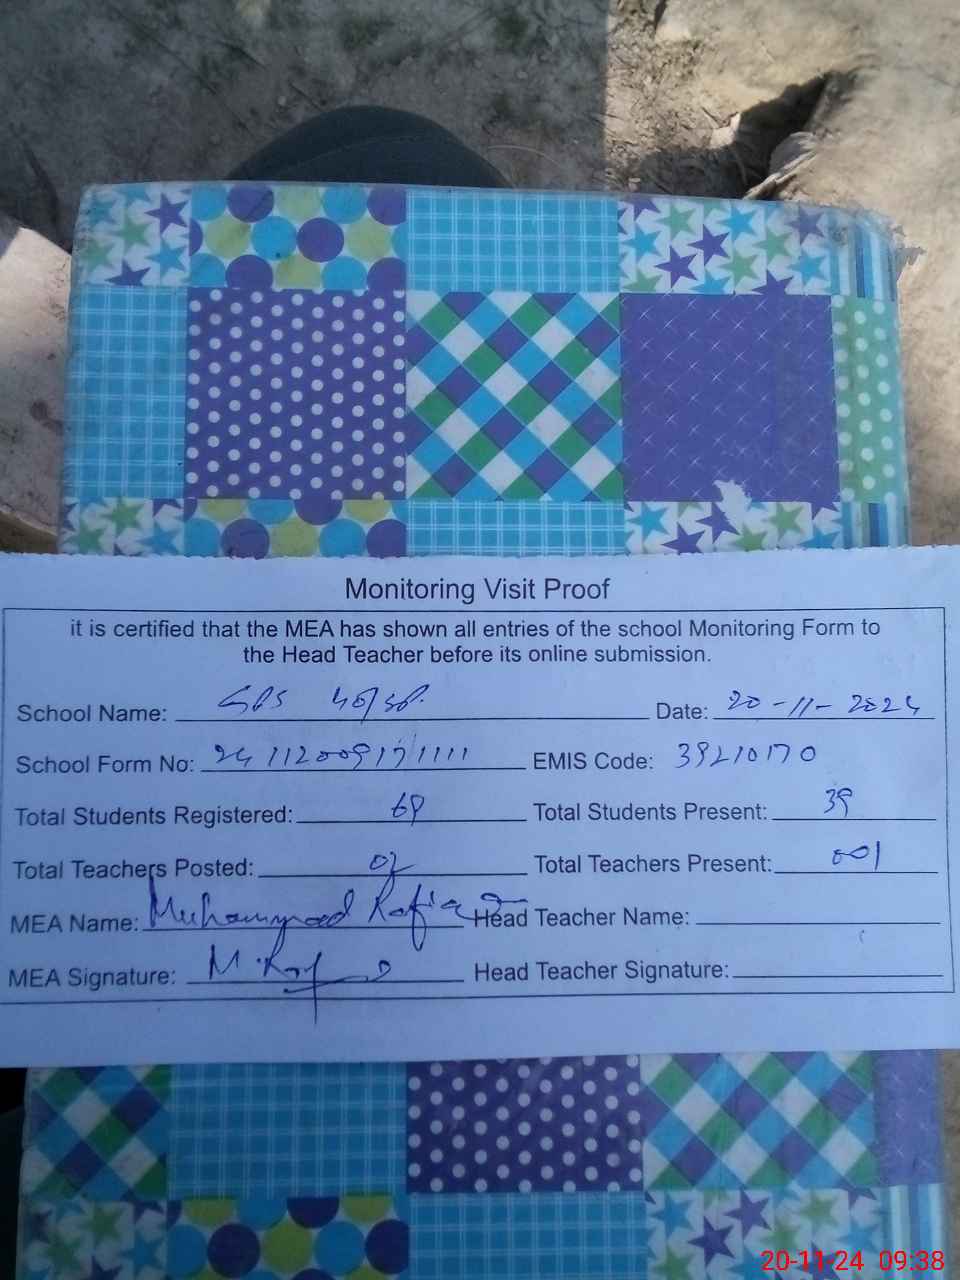 Monitoring Visit Proof
it is certified that the MEA has shown all entries of the school Monitoring Form to
the Head Teacher before its online submission.
School Name: GPS Date: 20-11-2024
School Form No: EMIS Code: 39210170
Total Students Registered: 69 Total Students Present: 39
Total Teachers Posted: 02 Total Teachers Present: 001
MEA Name: Muhammad Rafiq Head Teacher Name:
MEA Signature: Head Teacher Signature:
20-11-24 09:38